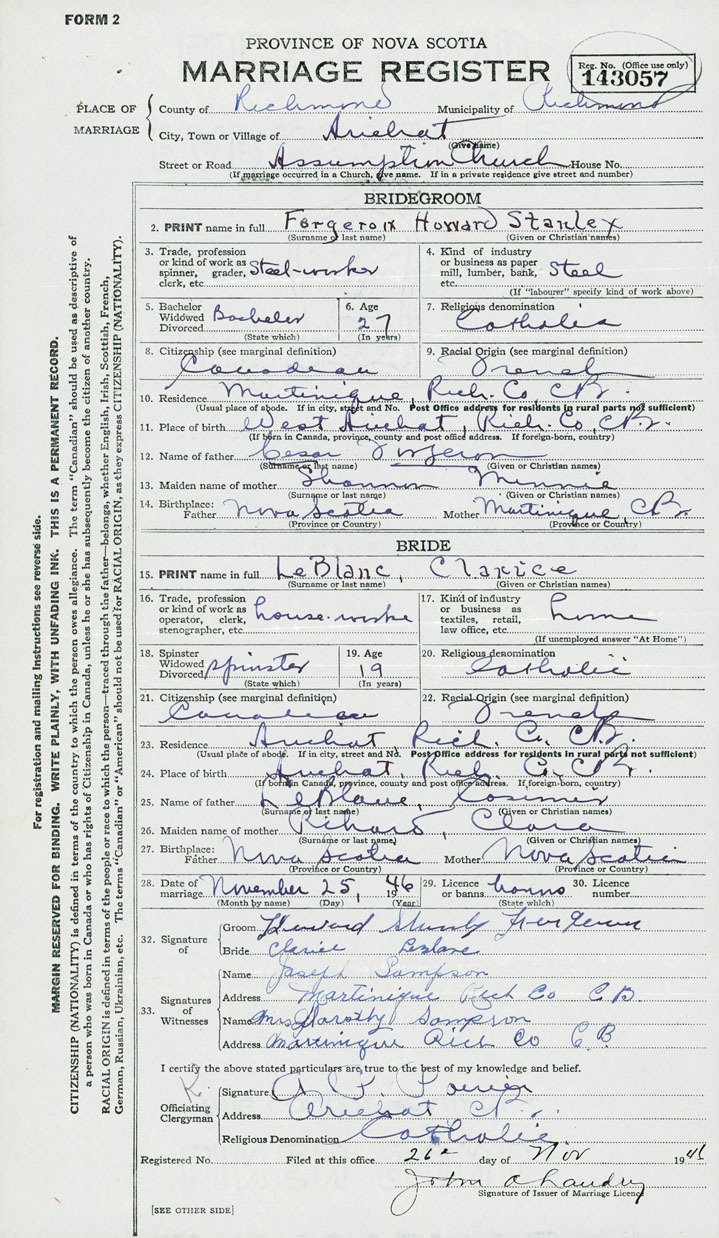 FORM 2
PROVINCE OF NOVA SCOTIA
MARRIAGE REGISTER
Reg. No. (Office use only)
143057
PLACE OF MARRIAGE
County of Richmond Municipality of Richmond
City, Town or Village of Arichat
(Give name)
Street or Road Assumption Church House No.
(If marriage occurred in a Church, give name. If in a private residence give street and number)
BRIDEGROOM
2. PRINT name in full Forgeron Howard Stanley
(Surname or last name) (Given or Christian names)
3. Trade, profession or kind of work as spinner, grader, clerk, etc. Steel-worker
4. Kind of industry or business as paper mill, lumber, bank, etc. Steel
(If "labourer" specify kind of work above)
5. Bachelor Widowed Divorced Bachelor
(State which)
6. Age 27
(In years)
7. Religious denomination Catholic
8. Citizenship (see marginal definition) Canadian
9. Racial Origin (see marginal definition) French
10. Residence Martinique, Rich. Co, C.B.
(Usual place of abode. If in city, street and No. Post Office address for residents in rural parts not sufficient)
11. Place of birth West Arichat, Rich. Co C.B.
(If born in Canada, province, county and post office address. If foreign-born, country)
12. Name of father Cesar Forgeron
(Surname or last name) (Given or Christian names)
13. Maiden name of mother Shannon Minnie
(Surname or last name) (Given or Christian names)
14. Birthplace: Father Nova Scotia Mother Martinique, C.B.
(Province or Country) (Province or Country)
BRIDE
15. PRINT name in full LeBlanc, Clarice
(Surname or last name) (Given or Christian names)
16. Trade, profession or kind of work as operator, clerk, stenographer, etc. house-worke
17. Kind of industry or business as textiles, retail, law office, etc. home
(If unemployed answer "At Home")
18. Spinster Widowed Divorced Spinster
(State which)
19. Age 19
(In years)
20. Religious denomination Catholic
21. Citizenship (see marginal definition) Canadian
22. Racial Origin (see marginal definition) French
23. Residence Arichat, Rich. Co. C.B.
(Usual place of abode. If in city, street and No. Post Office address for residents in rural parts not sufficient)
24. Place of birth Arichat, Rich. Co. C.B.
(If born in Canada, province, county and post office address. If foreign-born, country)
25. Name of father LeBlanc, Cosimir
(Surname or last name) (Given or Christian names)
26. Maiden name of mother Richard, Clara
(Surname or last name) (Given or Christian names)
27. Birthplace: Father Nova Scotia Mother Nova Scotia
(Province or Country) (Province or Country)
28. Date of marriage November 25, 1946
(Month by name) (Day) (Year)
29. Licence or banns banns
(State which)
30. Licence number
32. Signature of
Groom Howard Stanly Forgeron
Bride Clarice Leblanc
33. Signatures of Witnesses
Name Joseph Sampson
Address Martinique Rich Co C.B.
Name Mrs Dorothy Sampson
Address Martinique Rich Co C.B.
I certify the above stated particulars are true to the best of my knowledge and belief.
Officiating Clergyman
Signature A. P. Poirier
Address Arichat C.B.
Religious Denomination Catholic
Registered No. Filed at this office 26th day of Nov 1946
Signature of Issuer of Marriage Licence
[SEE OTHER SIDE]
For registration and mailing instructions see reverse side.
MARGIN RESERVED FOR BINDING. WRITE PLAINLY, WITH UNFADING INK. THIS IS A PERMANENT RECORD.
CITIZENSHIP (NATIONALITY) is defined in terms of the country to which the person owes allegiance. The term "Canadian" should be used as descriptive of
a person who was born in Canada or who has rights of Citizenship in Canada, unless he or she has subsequently become the citizen of another country.
RACIAL ORIGIN is defined in terms of the people or race to which the person—traced through the father—belongs, whether English, Irish, Scottish, French,
German, Russian, Ukrainian, etc. The terms "Canadian" or "American" should not be used for RACIAL ORIGIN, as they express CITIZENSHIP (NATIONALITY).